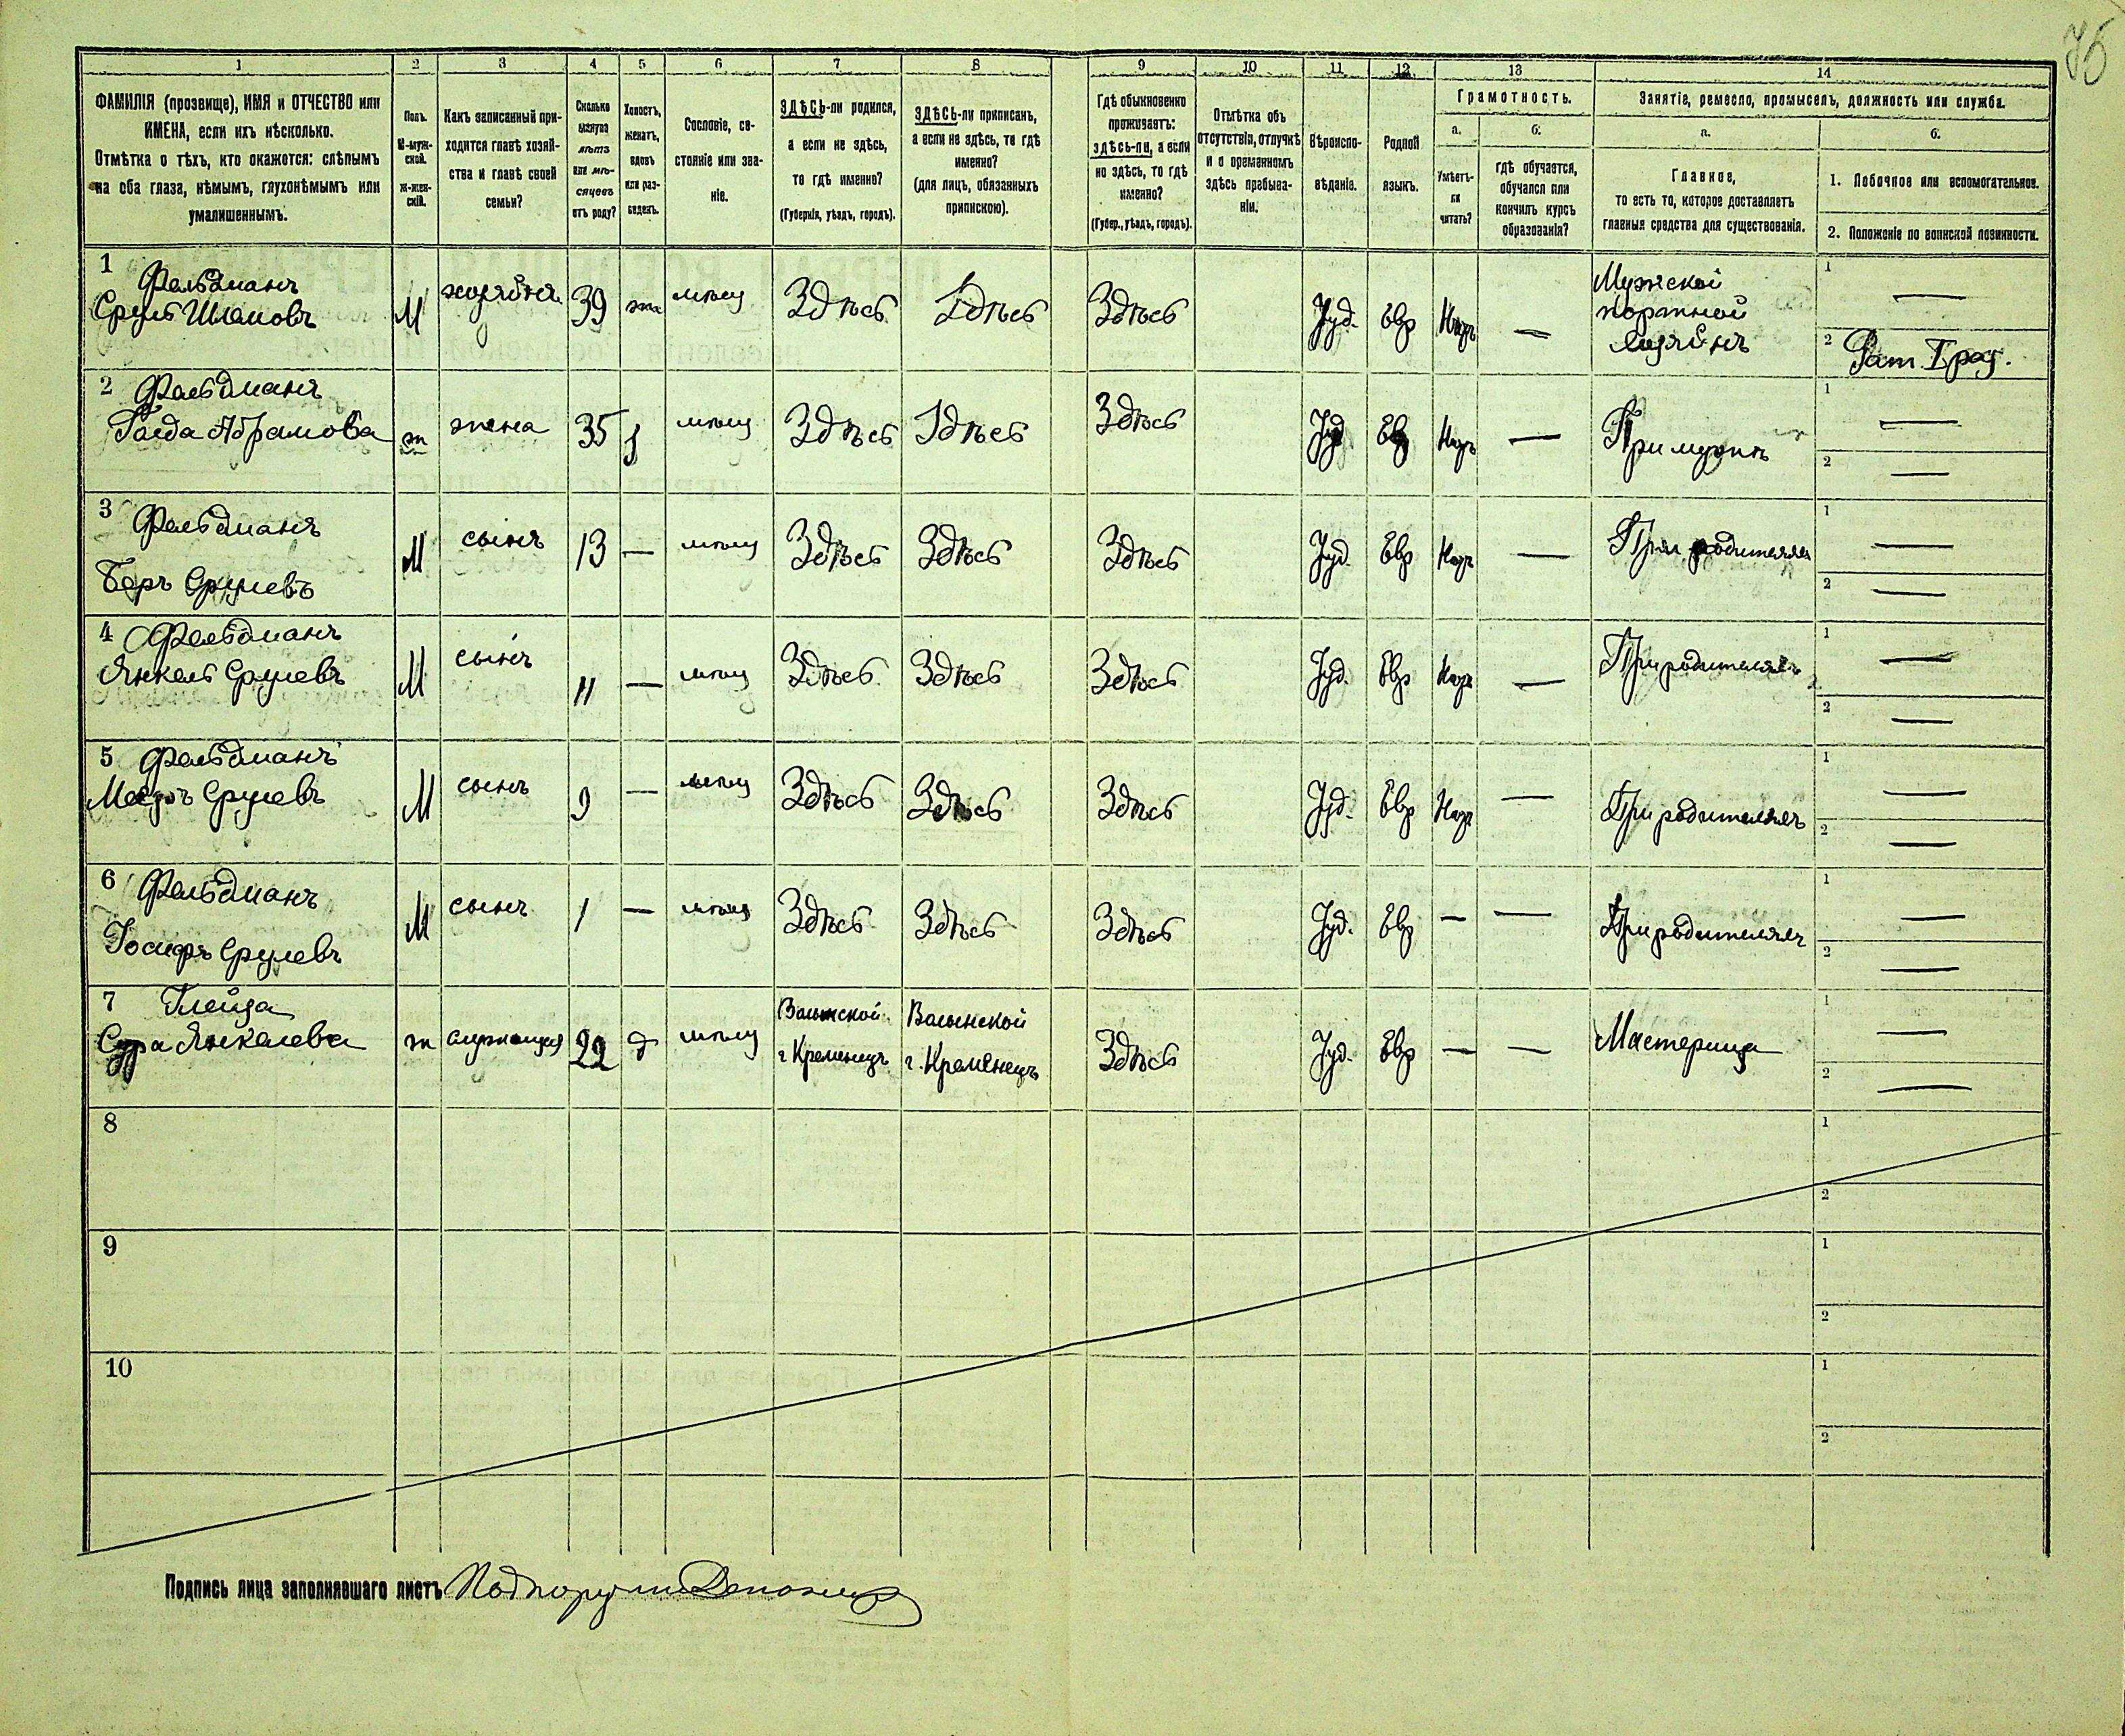 75
1 2 3 4 5 6 7 8 9 10 11 12 13 14
ФАМИЛІЯ (прозвище), ИМЯ и ОТЧЕСТВО или
ИМЕНА, если ихъ нѣсколько.
Отмѣтка о тѣхъ, кто окажется: слѣпымъ
на оба глаза, нѣмымъ, глухонѣмымъ или
умалишеннымъ.
Полъ.
М-муж-
ской.
ж-жен-
скій.
Какъ записанный при-
ходится главѣ хозяй-
ства и главѣ своей
семьи?
Сколько
минуло
лѣтъ
или мѣ-
сяцевъ
отъ роду?
Холостъ,
женатъ,
вдовъ
или раз-
веденъ.
Сословіе, со-
стояніе или зва-
ніе.
ЗДѢСЬ-ли родился,
а если не здѣсь,
то гдѣ именно?
(Губернія, уѣздъ, городъ).
ЗДѢСЬ-ли приписанъ,
а если не здѣсь, то гдѣ
именно?
(для лицъ, обязанныхъ
припискою).
Гдѣ обыкновенно
проживаетъ:
здѣсь-ли, а если
не здѣсь, то гдѣ
именно?
(Губер., уѣздъ, городъ).
Отмѣтка объ
отсутствіи, отлучкѣ
и о временномъ
здѣсь пребыва-
ніи.
Вѣроиспо-
вѣданіе.
Родной
языкъ.
Грамотность.
а.
Умѣетъ-
ли
читать?
б.
гдѣ обучается,
обучался или
кончилъ курсъ
образованія?
Занятіе, ремесло, промыселъ, должность или служба.
а.
Главное,
то есть то, которое доставляетъ
главныя средства для существованія.
б.
1. Побочное или вспомогательное.
2. Положеніе по воинской повинности.
1 Фельдманъ
Сруль Шлемовъ
М хозяинъ 39 ж мѣщ Здѣсь Здѣсь Здѣсь Іуд. Евр Негр —
Мужской
портной
хозяинъ
1 —
2 Рат. I раз.
2 Фельдманъ
Голда Абрамова
ж жена 35 з мѣщ Здѣсь Здѣсь Здѣсь Іуд Евр Негр — При мужѣ
1 —
2 —
3 Фельдманъ
Беръ Срулевъ
М сынъ 13 — мѣщ Здѣсь Здѣсь Здѣсь Іуд. Евр Негр — При родителяхъ
1 —
2 —
4 Фельдманъ
Янкель Срулевъ
М сынъ 11 — мѣщ Здѣсь Здѣсь Здѣсь Іуд. Евр Негр — При родителяхъ
1 —
2 —
5 Фельдманъ
Мееръ Срулевъ
М сынъ 9 — мѣщ Здѣсь Здѣсь Здѣсь Іуд. Евр Негр — При родителяхъ
1 —
2 —
6 Фельдманъ
Іосифъ Срулевъ
М сынъ 1 — мѣщ Здѣсь Здѣсь Здѣсь Іуд. Евр — — При родителяхъ
1 —
2 —
7 Глейза
Сура Янкелева
ж служащая 22 д мѣщ
Волынской
г Кременецъ
Волынской
г. Кременецъ
Здѣсь Іуд. Евр — — Мастерица
1 —
2 —
8
1
2
9
1
2
10
1
2
Подпись лица заполнявшаго листъ